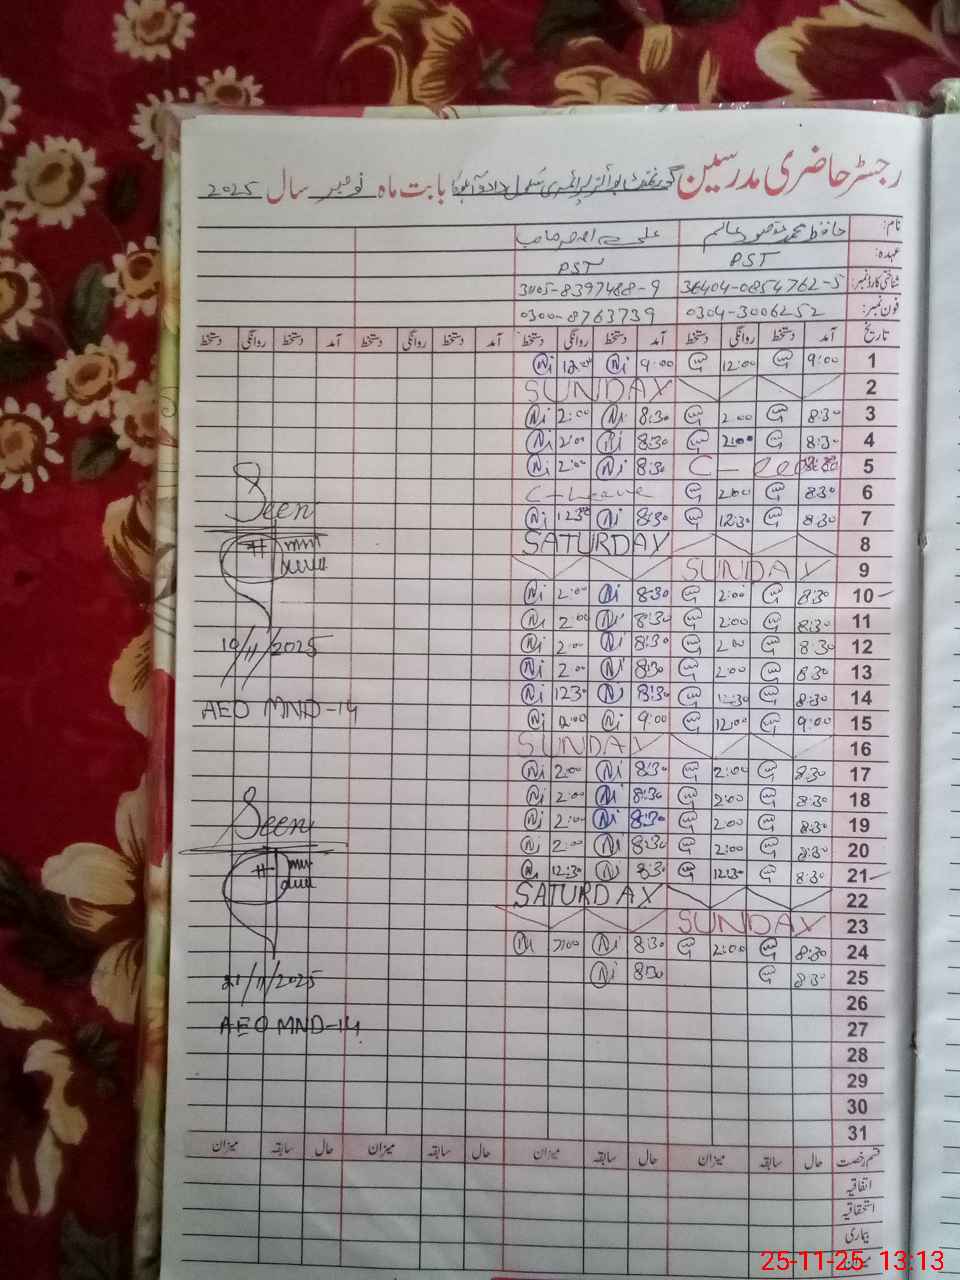 رجسٹر حاضری مدرسین گورنمنٹ بوائز پرائمری سکول بابت ماہ نومبر سال 2025
نام: حافظ محمد مقصود عالم
عہدہ: PST PST
شناختی کارڈ نمبر: 36404-0854762-5 31105-8397488-9
فون نمبر: 0304-3006252 0300-8763739
تاریخ آمد دستخط روانگی دستخط آمد دستخط روانگی دستخط آمد دستخط روانگی دستخط آمد دستخط روانگی دستخط
1 9:00 12:00 9:00 Ni 12:00 Ni
2 SUNDAY
3 8:30 2:00 8:30 Ni 2:00 Ni
4 8:30 2:00 8:30 Ni 2:00 Ni
5 8:30 Ni 2:00 Ni
6 8:30 2:00 C-Leave
7 8:30 12:30 8:30 Ni 12:30 Ni
8 SATURDAY
9 SUNDAY
10 8:30 2:00 8:30 Ni 2:00 Ni
11 8:30 2:00 8:30 Ni 2:00 Ni
12 8:30 2:00 8:30 Ni 2:00 Ni
13 8:30 2:00 8:30 Ni 2:00 Ni
14 8:30 12:30 8:30 Ni 12:30 Ni
15 9:00 12:00 9:00 Ni Ni
16 SUNDAY
17 8:30 2:00 8:30 Ni 2:00 Ni
18 8:30 2:00 8:30 Ni 2:00 Ni
19 8:30 2:00 8:30 Ni 2:00 Ni
20 8:30 2:00 8:30 Ni 2:00 Ni
21 8:30 12:30 8:30 Ni 12:30 Ni
22 SATURDAY
23 SUNDAY
24 8:30 2:00 8:30 Ni 2:00 Ni
25 8:30 8:30 Ni
26
27
28
29
30
31
Seen
19/11/2025
AEO MND-14
Seen
21/11/2025
AEO MND-14
قسم رخصت حال سابقہ میزان حال سابقہ میزان حال سابقہ میزان حال سابقہ میزان
اتفاقیہ
استحقاقیہ
بیماری
25-11-25 13:13